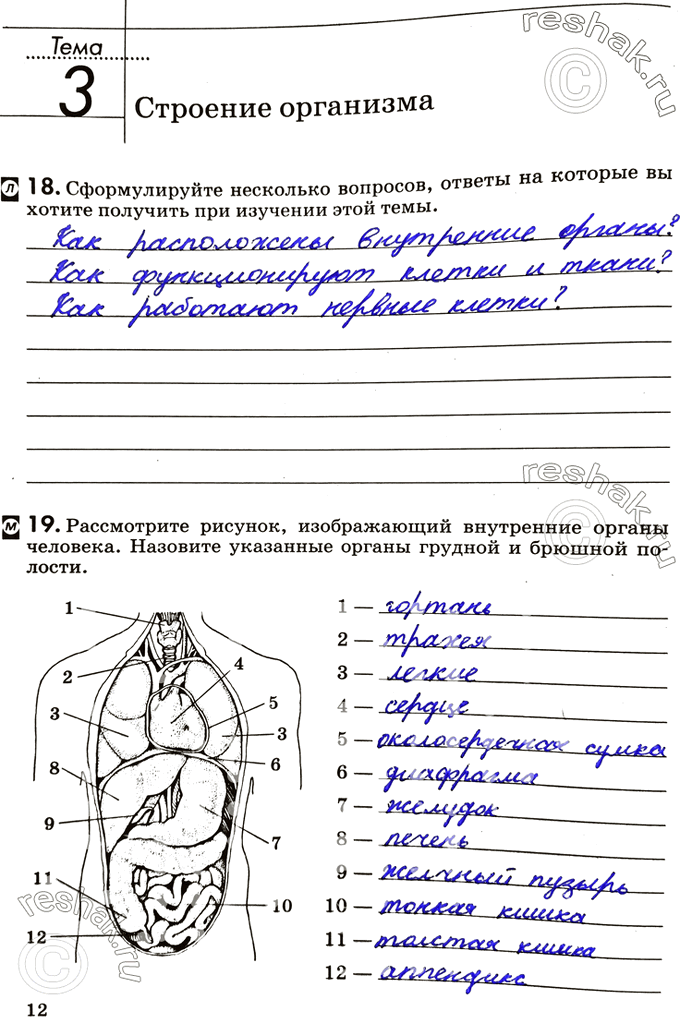 Тема
3
Строение организма
reshak.ru
©
Л 18. Сформулируйте несколько вопросов, ответы на которые вы
хотите получить при изучении этой темы.
Как расположены внутренние органы?
Как функционируют клетки и ткани?
Как работают нервные клетки?
reshak.ru
©
М 19. Рассмотрите рисунок, изображающий внутренние органы
человека. Назовите указанные органы грудной и брюшной по-
лости.
1
2
3
4
5
3
6
8
9
7
11
10
12
1 — гортань
2 — трахея
3 — легкие
4 — сердце
5 — околосердечная сумка
6 — диафрагма
7 — желудок
8 — печень
9 — желчный пузырь
10 — тонкая кишка
11 — толстая кишка
12 — аппендикс
reshak.ru
©
12